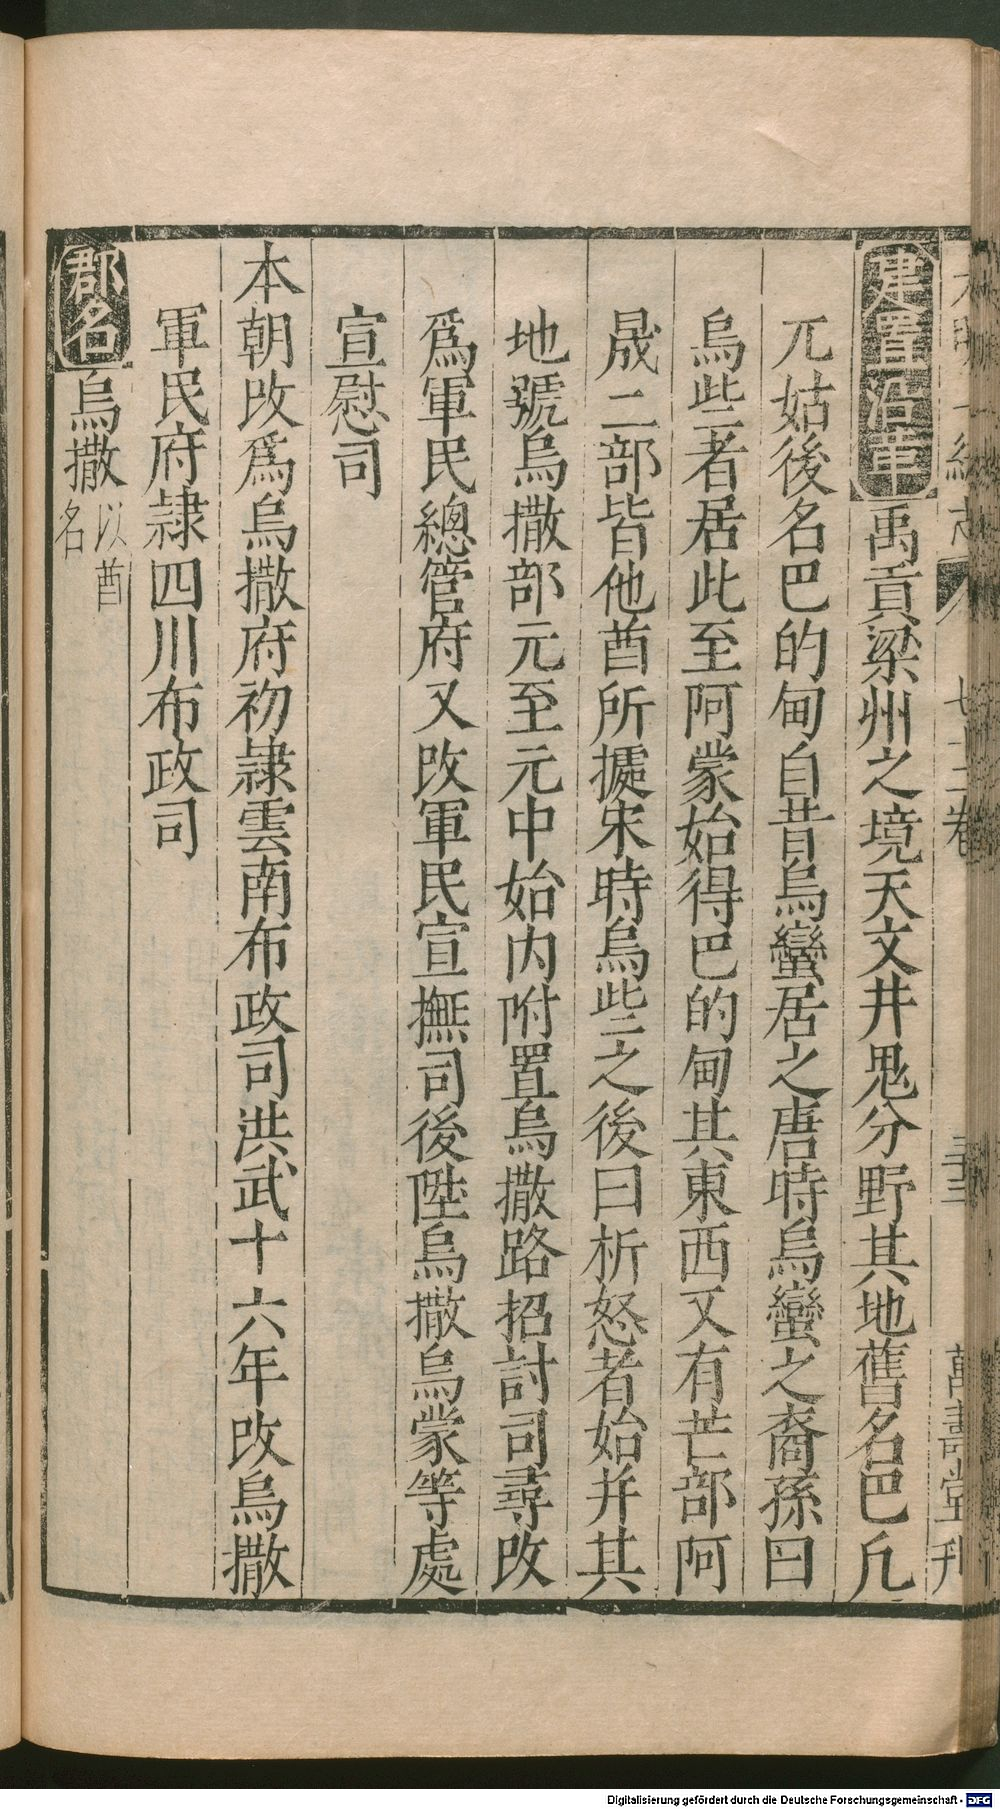 大明一統志 七十二卷 三十三 萬壽堂刊
建置沿革 禹貢梁州之境天文井鬼分野其地舊名巴凢
兀姑後名巴的甸自昔烏蠻居之唐時烏蠻之裔孫曰
烏些者居此至阿䝉始得巴的甸其東西又有芒部阿
晟二部皆他酋所㩀宋時烏些之後曰析怒者始并其
地號烏撒部元至元中始内附置烏撒路招討司尋攺
爲軍民總管府又攺軍民宣撫司後陞烏撒烏䝉等處
宣慰司
本朝攺爲烏撒府初隷雲南布政司洪武十六年攺烏撒
軍民府隷四川布政司
郡名 烏撒 以酋名
Digitalisierung gefördert durch die Deutsche Forschungsgemeinschaft - DFG